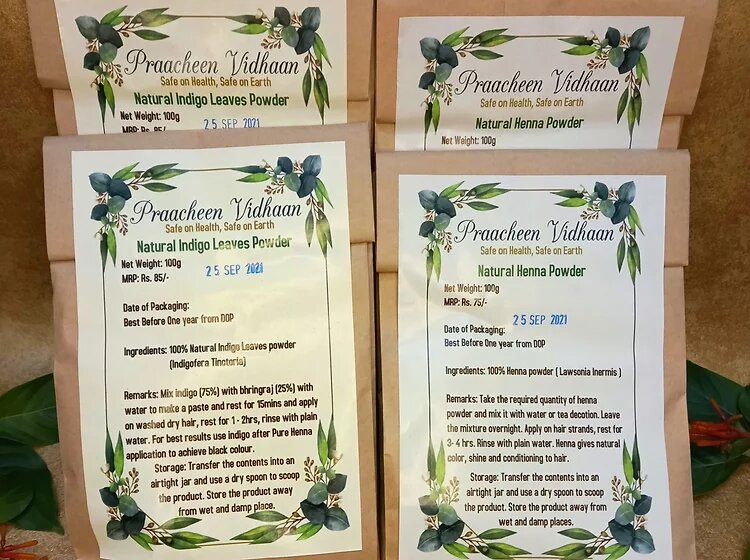 Praacheen Vidhaan
Safe on Health, Safe on Earth
Natural Indigo Leaves Powder
Net Weight: 100g
MRP: Rs. 85/-
25 SEP 2021
Praacheen Vidhaan
Safe on Health, Safe on Earth
Natural Henna Powder
Net Weight: 100g
Praacheen Vidhaan
Safe on Health, Safe on Earth
Natural Indigo Leaves Powder
Net Weight: 100g
MRP: Rs. 85/-
25 SEP 2021
Date of Packaging:
Best Before One year from DOP
Ingredients: 100% Natural Indigo Leaves powder
(Indigofera Tinctoria)
Remarks: Mix indigo (75%) with bhringraj (25%) with
water to make a paste and rest for 15mins and apply
on washed dry hair, rest for 1 - 2hrs, rinse with plain
water. For best results use indigo after Pure Henna
application to achieve black colour.
Storage: Transfer the contents into an
airtight jar and use a dry spoon to scoop
the product. Store the product away
from wet and damp place.
Praacheen Vidhaan
Safe on Health, Safe on Earth
Natural Henna Powder
Net Weight: 100g
MRP: Rs. 75/-
25 SEP 2021
Date of Packaging:
Best Before One year from DOP
Ingredients: 100% Henna powder ( Lawsonia Inermis )
Remarks: Take the required quantity of henna
powder and mix it with water or tea decotion. Leave
the mixture overnight. Apply on hair strands, rest for
3- 4 hrs. Rinse with plain water. Henna gives natural
color, shine and conditioning to hair.
Storage: Transfer the contents into an
airtight jar and use a dry spoon to scoop
the product. Store the product away from
wet and damp places.